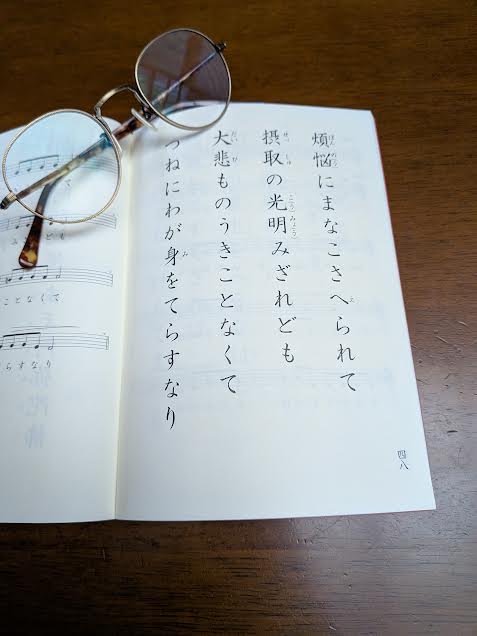 煩悩にまなこさへられて
摂取の光明みざれども
大悲ものうきことなくて
つねにわが身をてらすなり
四八
ことなくて
らすなり